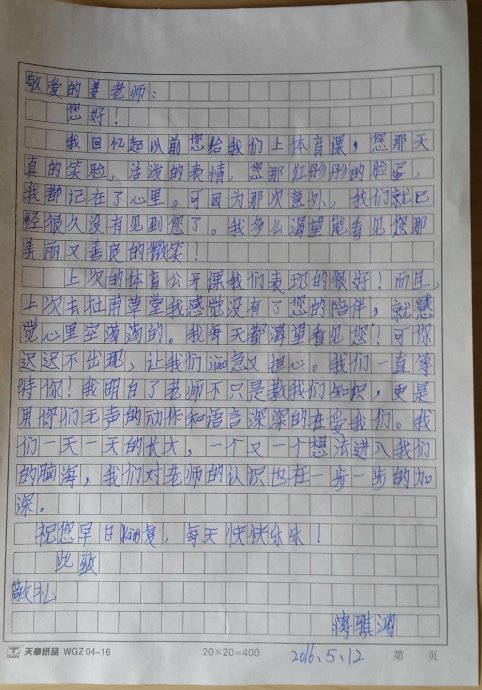 敬爱的姜老师:
您好!
我回忆起以前您给我们上体育课,您那天
真的笑脸,活泼的表情,您那红彤彤的脸蛋,
我都记在了心里。可因为那次意外,我们就已
经很久没有见到您了。我多么渴望能看见您那
美丽又善良的微笑!
上次的体育公开课我们表现的很好!而且,
上次去杜甫草堂我感觉没有了您的陪伴,就感
觉心里空荡荡的。我每天都渴望看见您!可你
迟迟不出现,让我们焦急又担心。我们一直等
待你!我明白了老师不只是教我们知识,更是
用你们无声的动作和语言深深的在爱我们。我
们一天一天的长大,一个又一个想法进入我们
的脑海,我们对老师的认识也在一步一步的加
深。
祝您早日恢复,每天快快乐乐!
此致
敬礼
蒋骐鸿
2016.5.12
天章纸品 WGZ 04-16 20×20=400 第 页